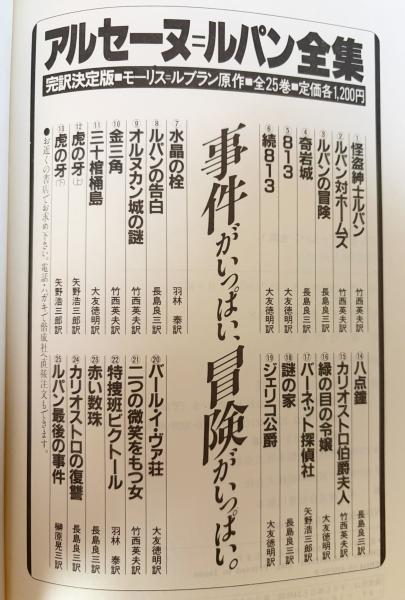 アルセーヌ=ルパン全集
完訳決定版■モーリス=ルブラン原作■全25巻■定価各1,200円
①怪盗紳士ルパン 竹西英夫訳
②ルパン対ホームズ 竹西英夫訳
③ルパンの冒険 長島良三訳
④奇岩城 長島良三訳
⑤813 大友徳明訳
⑥続813 大友徳明訳
事件がいっぱい、冒険がいっぱい。
⑦水晶の栓 羽林 泰訳
⑧ルパンの告白 長島良三訳
⑨オルヌカン城の謎 竹西英夫訳
⑩金三角 竹西英夫訳
⑪三十棺桶島 大友徳明訳
⑫虎の牙(上) 矢野浩三郎訳
⑬虎の牙(下) 矢野浩三郎訳
⑭八点鐘 長島良三訳
⑮カリオストロ伯爵夫人 竹西英夫訳
⑯緑の目の令嬢 大友徳明訳
⑰バーネット探偵社 矢野浩三郎訳
⑱謎の家 長島良三訳
⑲ジェリコ公爵 大友徳明訳
⑳バール・イ・ヴァ荘 大友徳明訳
㉑二つの微笑をもつ女 竹西英夫訳
㉒特捜班ビクトール 羽林 泰訳
㉓赤い数珠 長島良三訳
㉔カリオストロの復讐 長島良三訳
㉕ルパン最後の事件 榊原晃三訳
●お近くの書店でお求め下さい。電話・ハガキで偕成社へ直接注文もできます。